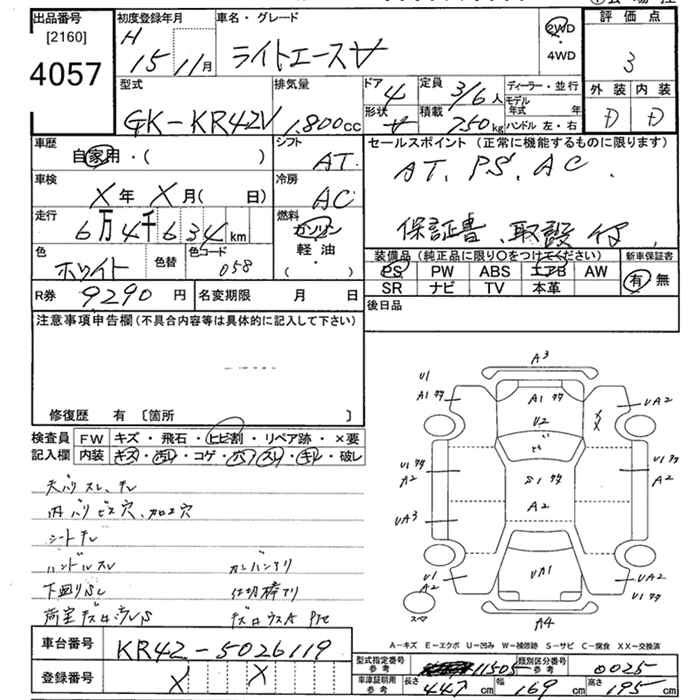 出品番号 初度登録年月 車名・グレード 評価点
[2160]
4057
H 15年 11月 ライトエースV
2WD・4WD
3
外装 内装
D D
型式 排気量 ドア 4 定員 3/6人 ディーラー・並行
GK-KR42V 1,800cc
形状 V 積載 750kg モデル年式 年
ハンドル 左・右
車歴 自家用・( )
シフト AT
セールスポイント (正常に機能するものに限ります)
AT, PS, AC
車検 X年 X月( 日)
冷房 AC
走行 6万4千634km
燃料 ガソリン
軽・油
保証書、取説付
色 ホワイト 色替 色コード 058
装備品 (純正品に限り○をつけてください) 新車保証書
PS PW ABS エアB AW
SR ナビ TV 本革
有 無
R券 9290円 名変期限 月 日
後日品
注意事項申告欄 (不具合内容等は具体的に記入して下さい)
修復歴 有 [箇所 ]
検査員 FW キズ・飛石・ヒビ割・リペア跡・×要
記入欄 内装 キズ・汚れ・コゲ・穴・スレ・キレ・破レ
天バリ スレ、キレ
内バリ ビス穴、加工穴
シートキレ
ハンドルスレ
下廻りサビ
仕切棒アリ
A3
U1
A1 A1 UA2
U2
ヒビ
XX
U1 U1
A2 S1 A2
A2
UA3
U1 UA1 UA2
A2 U1
スペア A4
A-キズ E-エクボ U-凹み W-補修跡 S-サビ C-腐食 XX-交換済
車台番号 KR42-5026119
登録番号 X X
型式指定番号 参考 11505 類別区分番号 参考 0025
車庫証明用 参考 長さ 447cm 幅 169cm 高さ 195cm